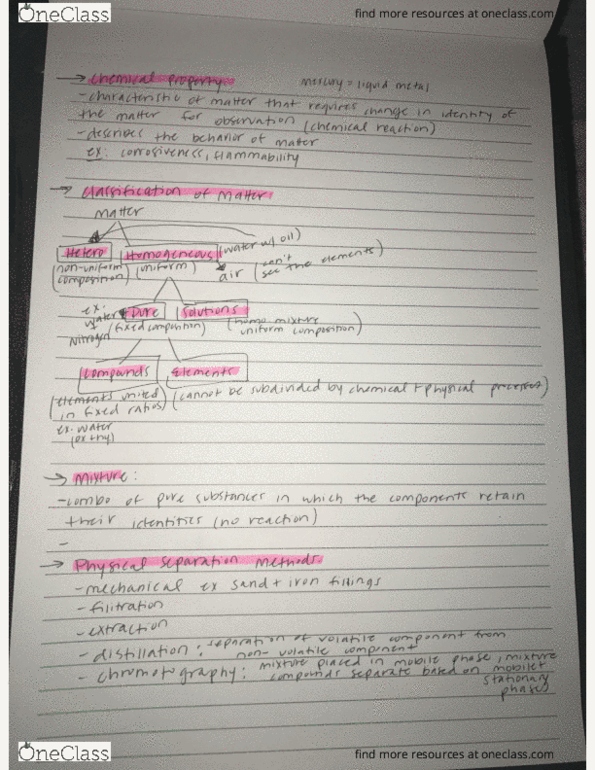 OneClass
find more resources at oneclass.com
→ Chemical property mercury = liquid metal
- characteristic of matter that requires change in identity of
the matter for observation (chemical reaction)
- describes the behavior of matter
ex: corrosiveness, flammability
→ Classification of matter
matter
Hetero Homogeneous (water w/ oil)
(non-uniform composition) (uniform) air (can't see the elements)
ex. water + Nitrogen Pure Solutions
(fixed composition) (homo mixture uniform composition)
Compounds Elements
(elements united in fixed ratios) (cannot be subdivided by chemical + physical processes)
ex. water
(ox + hy)
→ Mixture:
- combo of pure substances in which the components retain
their identities (no reaction)
-
→ Physical separation methods
- mechanical ex sand + iron fillings
- filitration
- extraction
- distillation: separation of volatile component from
non-volatile component
- chromotography: mixture placed in mobile phase, mixture
compounds separate based on mobile +
stationary
phases
OneClass
find more resources at oneclass.com